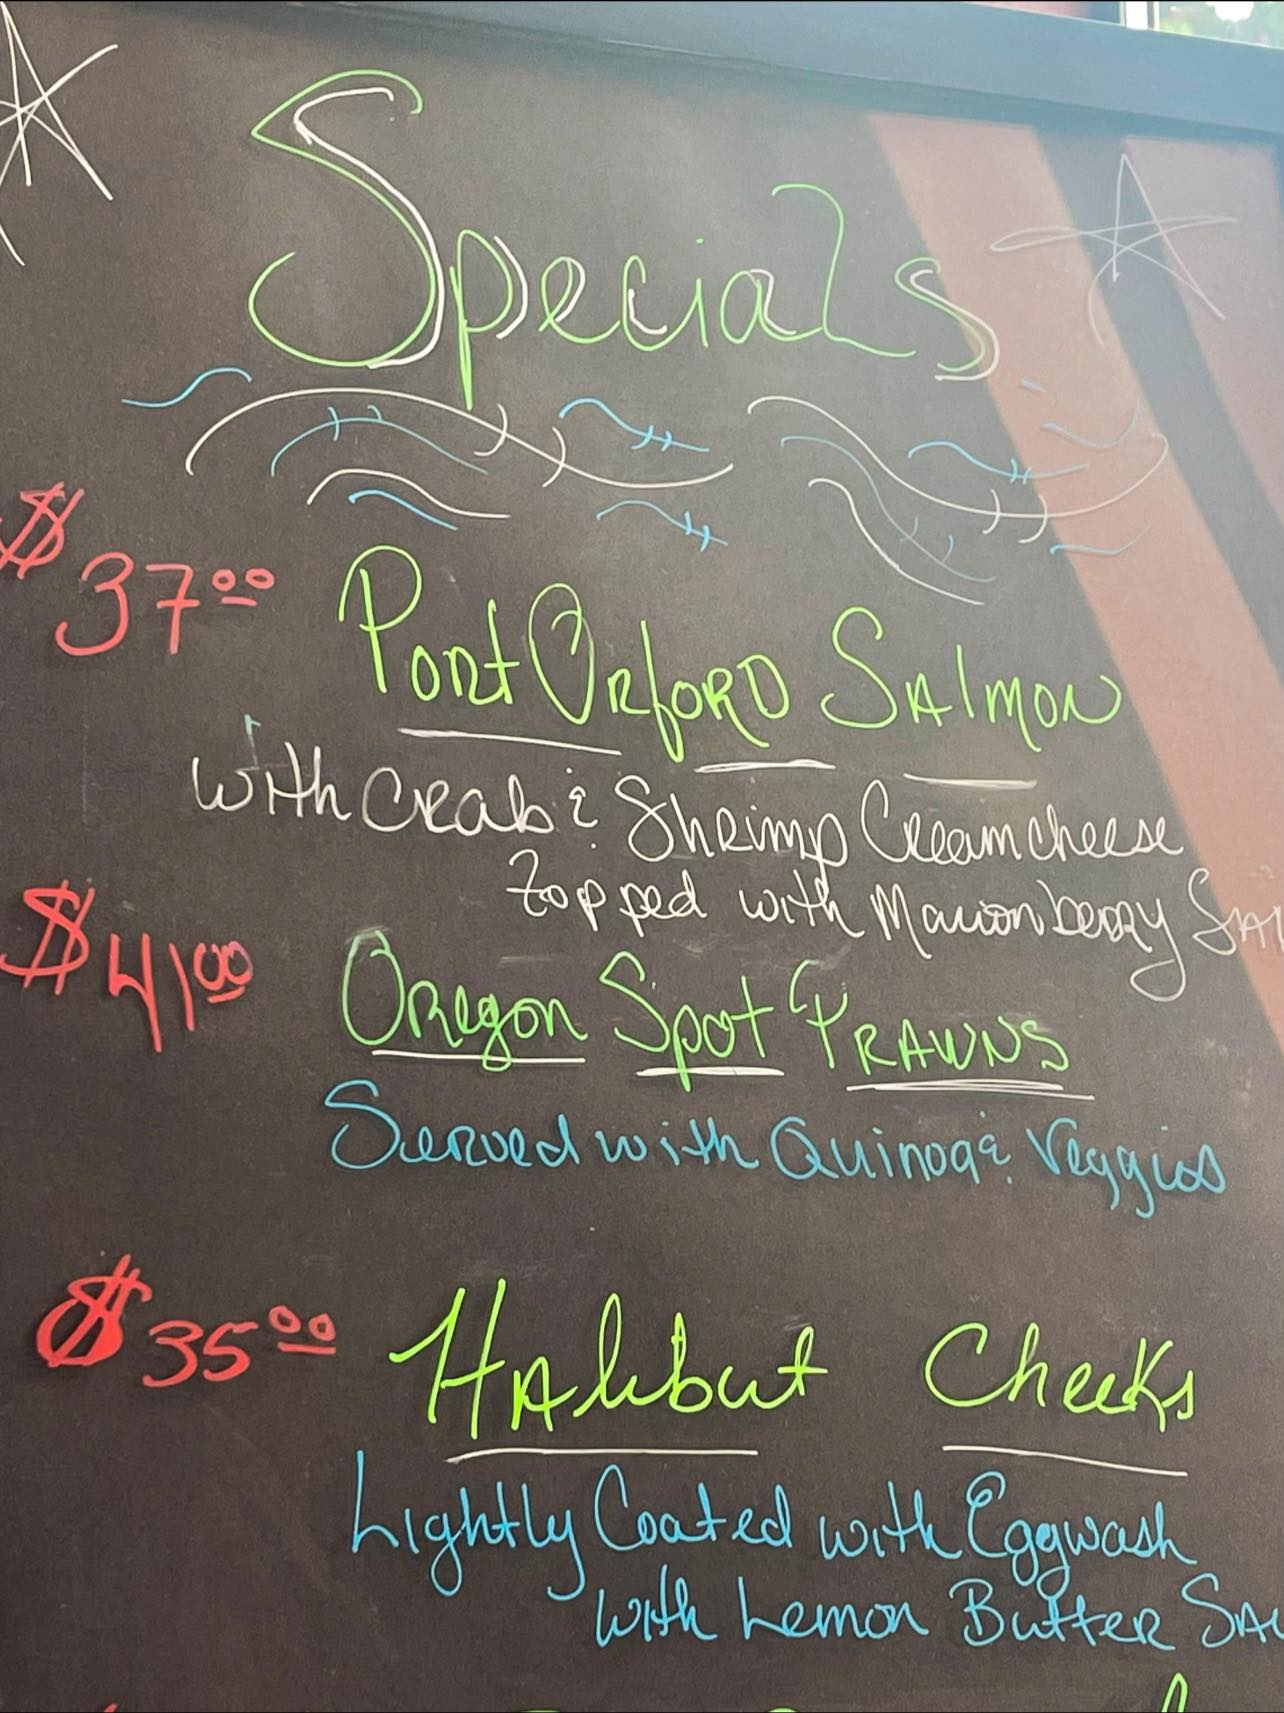 Specials
$37.00 Port Orford Salmon
with Crab & Shrimp Creamcheese
topped with Marionberry
$41.00 Oregon Spot Prawns
Served with Quinoa & Veggies
$35.00 Halibut Cheeks
Lightly Coated with Eggwash
with Lemon Butter